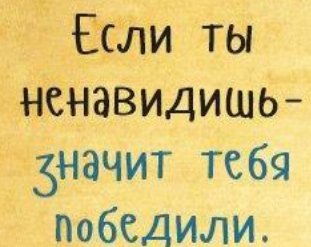 Если ты
ненавидишь-
значит тебя
победили.